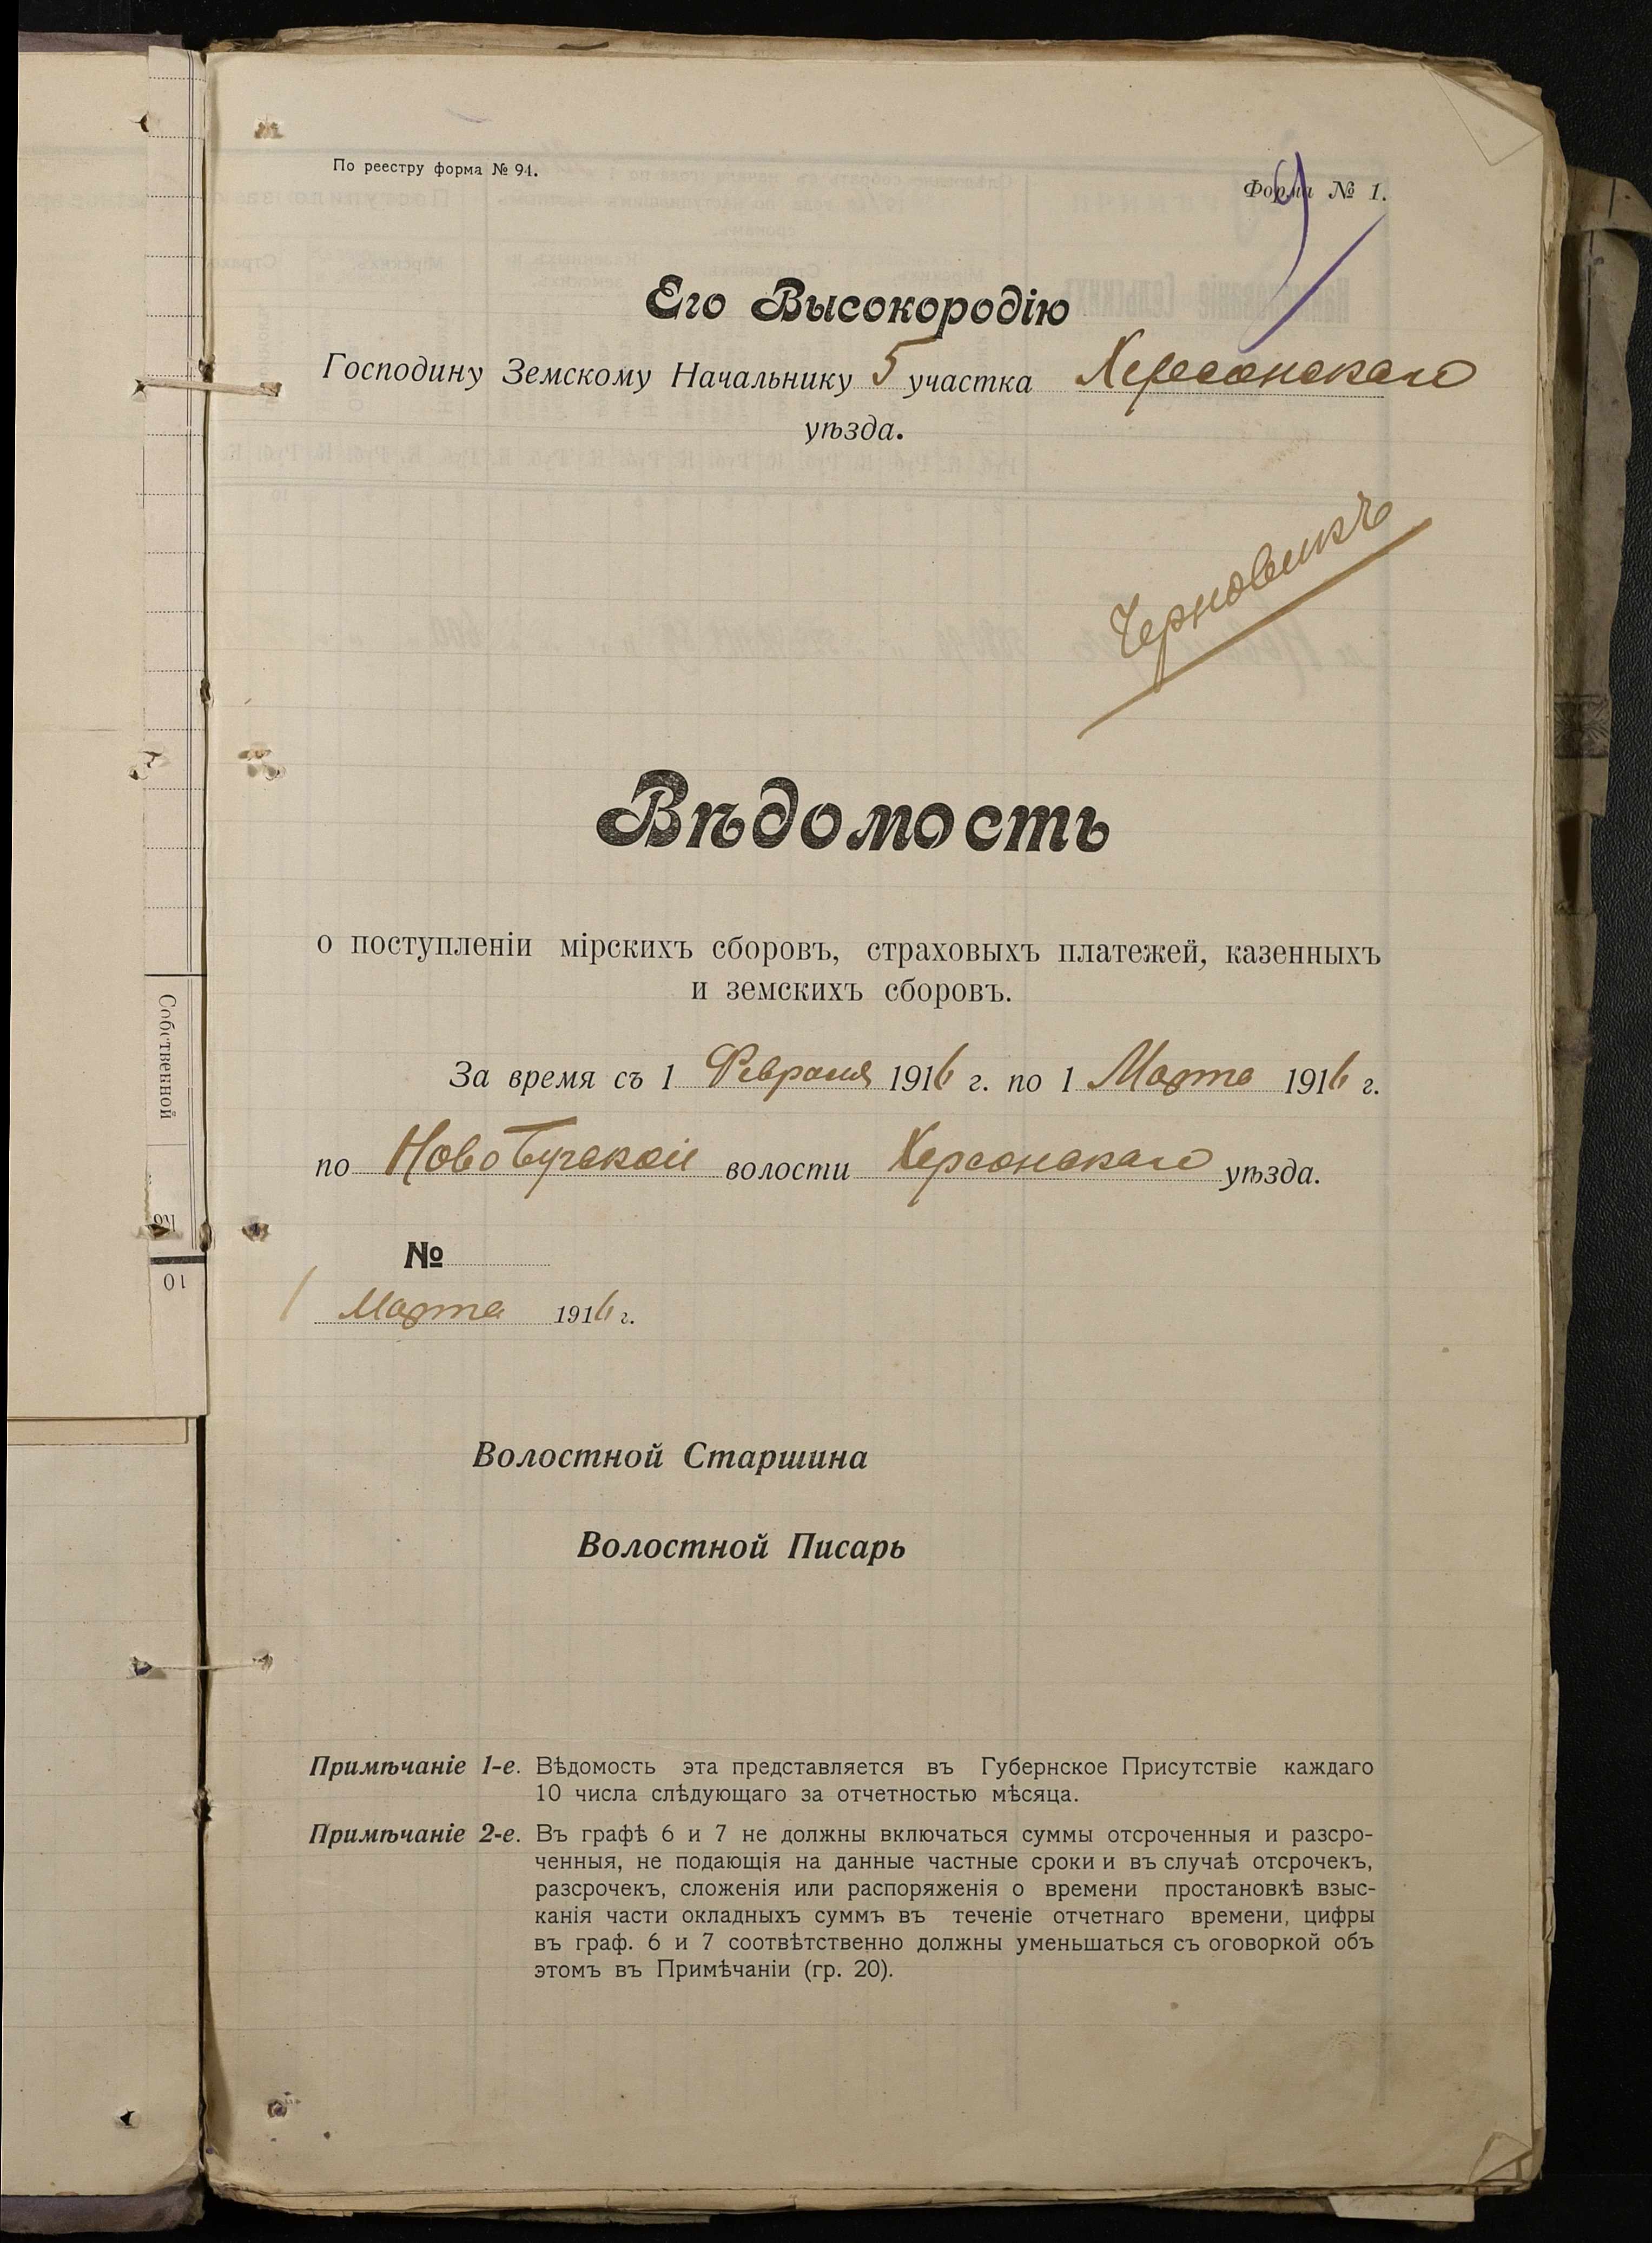 По реестру форма № 94.
Форма № 1.
9
Его Высокородію
Господину Земскому Начальнику 5 участка Херсонскаго
уѣзда.
Черновикъ
Вѣдомость
о поступленіи мірскихъ сборовъ, страховыхъ платежей, казенныхъ
и земскихъ сборовъ.
За время съ 1 Февраля 1916 г. по 1 Марта 1916 г.
по Ново Бугской волости Херсонскаго уѣзда.
№
1 Марта 1916 г.
Волостной Старшина
Волостной Писарь
Примѣчаніе 1-е. Вѣдомость эта представляется въ Губернское Присутствіе каждаго
10 числа слѣдующаго за отчетностью мѣсяца.
Примѣчаніе 2-е. Въ графѣ 6 и 7 не должны включаться суммы отсроченныя и разсро-
ченныя, не подающія на данные частные сроки и въ случаѣ отсрочекъ,
разсрочекъ, сложенія или распоряженія о времени простановкѣ взыс-
канія части окладныхъ суммъ въ теченіе отчетнаго времени, цифры
въ граф. 6 и 7 соотвѣтственно должны уменьшаться съ оговоркой объ
этомъ въ Примѣчаніи (гр. 20).
Собственной
10